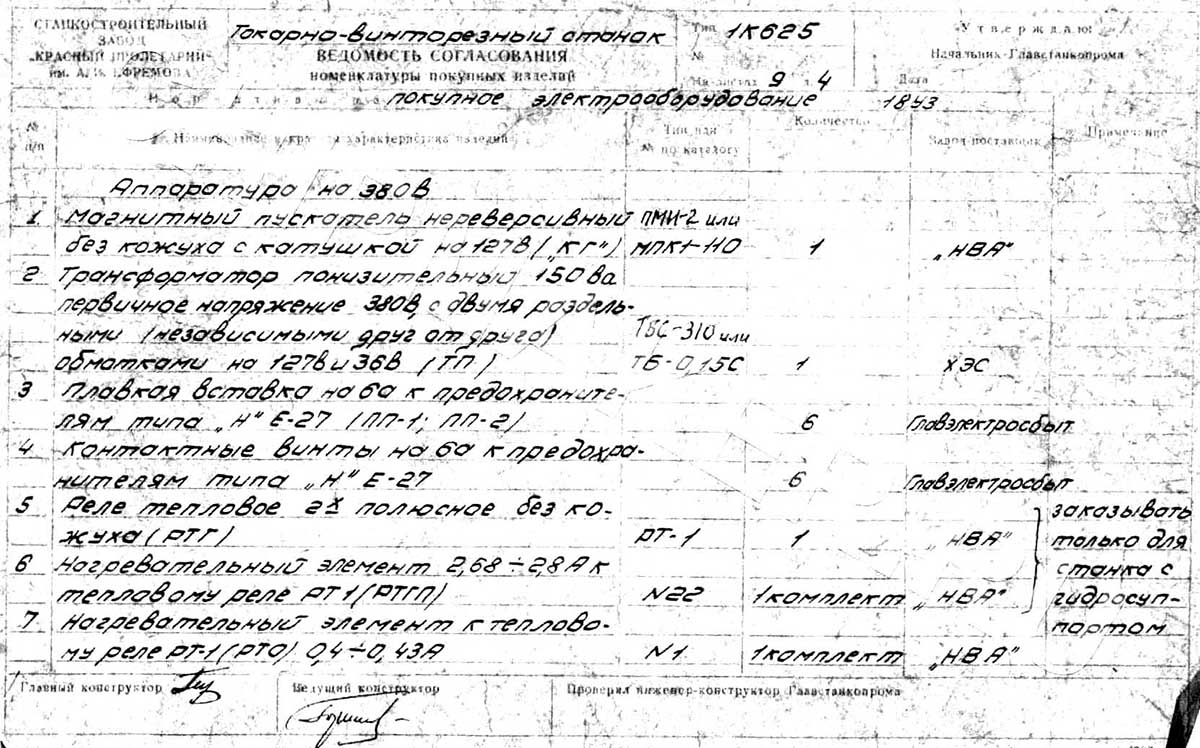 СТАНКОСТРОИТЕЛЬНЫЙ
ЗАВОД
„КРАСНЫЙ ПРОЛЕТАРИЙ"
им. А.И. ЕФРЕМОВА
Токарно-винторезный станак
ВЕДОМОСТЬ СОГЛАСОВАНИЯ
номенклатуры покупных изделий
Тип 1К625
№
На листах 9 л 4
Утверждаю:
Начальник Главстанкопрома
Дата
покупное электрооборудование 18УЗ
№ п/п
Наименование и характеристика изделий
Тип или № по каталогу
Количество
Завод-поставщик
Примечание
Аппаратура на 380в
1 Магнитный пускатель нереверсивный ПМИ-2 или
без кожуха с катушкой на 127в („КГ") МПК1-110 1 „НВА"
2 Трансформатор понизительный 150 ва
первичное напряжение 380в, с двумя раздель-
ными (независимыми друг от друга) ТБС-310 или
обмотками на 127в и 36в (ТП) ТБ-0,15С 1 ХЭС
3 Плавкая вставка на 6а к предохраните-
лям типа „Н" Е-27 (ПП-1; ПП-2) 6 Главэлектросбыт
4 Контактные винты на 6а к предохра-
нителям типа „Н" Е-27 6 Главэлектросбыт
5 Реле тепловое 2х полюсное без ко-
жуха (РТГ) РТ-1 1 „НВА"
6 Нагревательный элемент 2,68÷2,8А к
тепловому реле РТ1 (РТГП) N22 1комплект „НВА"
заказывать
только для
станка с
гидросуп-
портом
7 Нагревательный элемент к теплово-
му реле РТ-1 (РТО) 0,4÷0,43А N1 1комплект „НВА"
Главный конструктор
Ведущий конструктор
Проверил инженер-конструктор Главстанкопрома